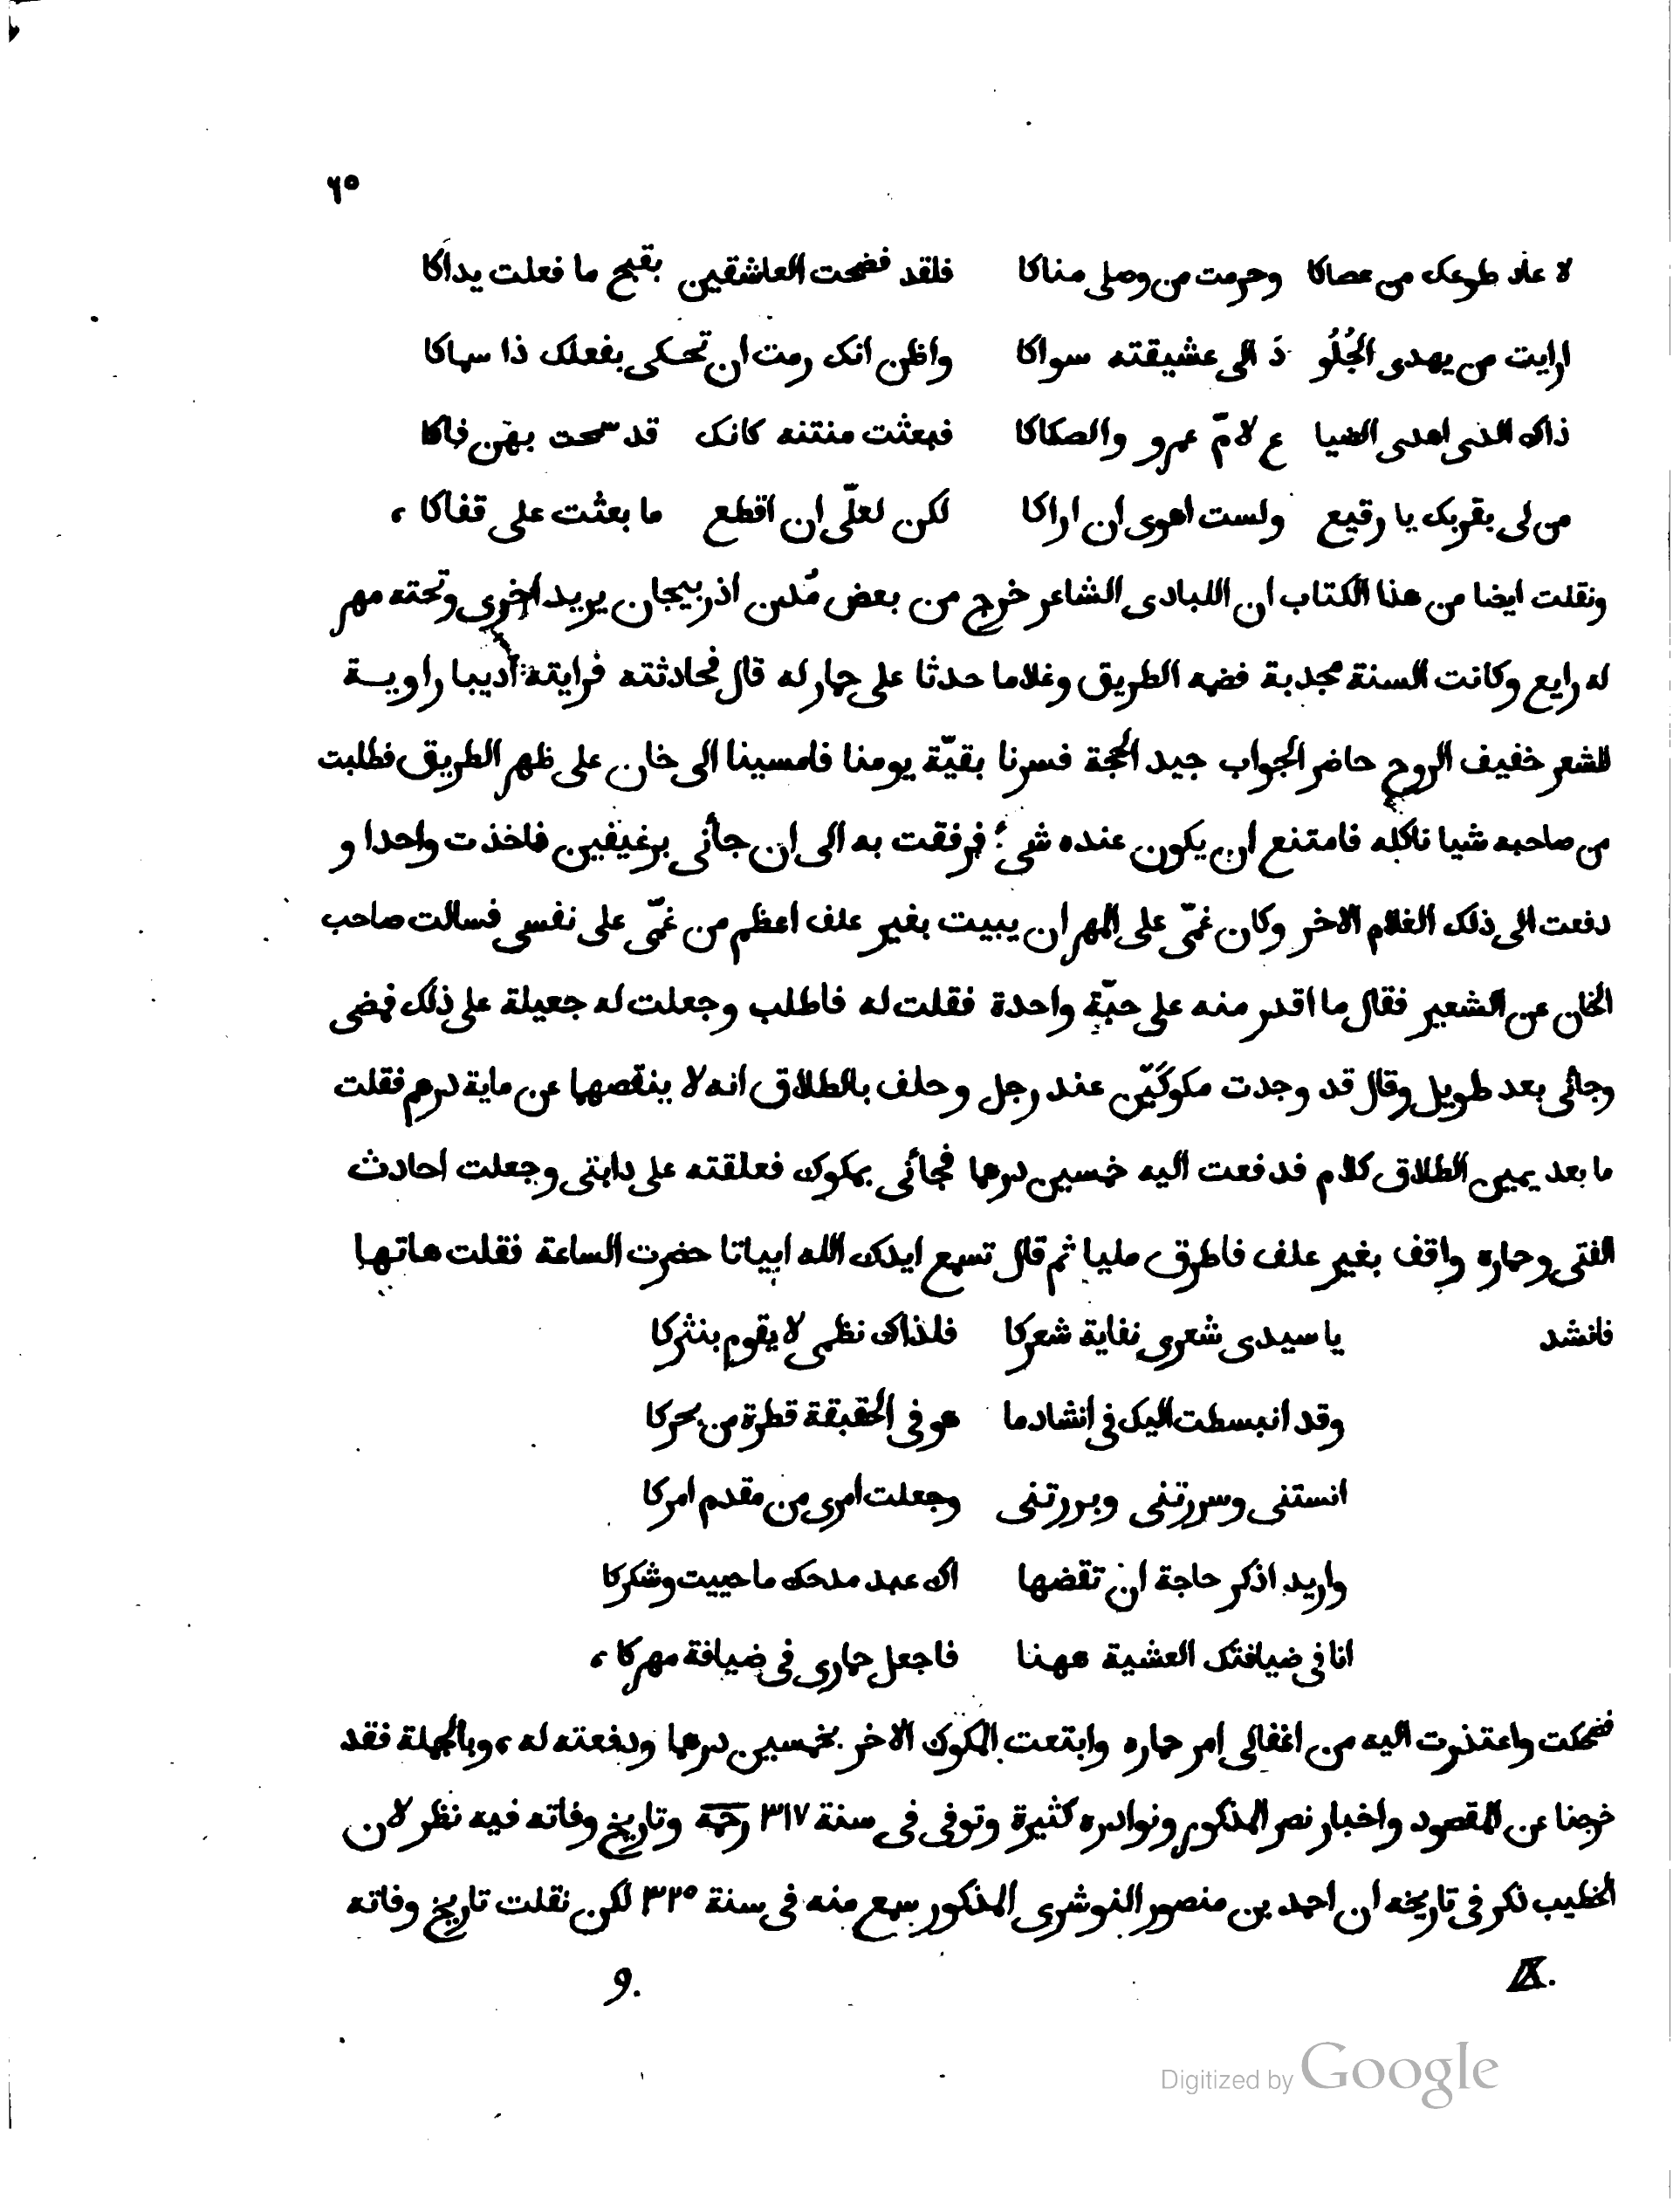 ٦٥
لا عاد طوعك من عصاكا وحرمت من وصلى مناكا فلقد فضحت العاشقين بقبح ما فعلت يداكا
ارايت من يهدى الجُلُو دَ الى عشيقته سواكا واظن انك رمت ان تحكى بفعلك ذا سماكا
ذاك الذى اهدى الضيا ع لامّ عمرو والصكاكا فبعثت منتنه كانك قد سمحت بهن فاكا
من لى بقربك يا رقيع ولست اهوى ان اراكا لكن لعلّى ان اقطع ما بعثت على قفاكا ،
ونقلت ايضا من هذا الكتاب ان اللبادى الشاعر خرج من بعض مُدن اذربيجان يريد اخرى وتحته مهر
له رايع وكانت السنة مجدبة فضمه الطريق وغلاما حدثا على حمار له قال فحادثته فرايته اديبا راويــة
للشعر خفيف الروح حاضر الجواب جيد الحجة فسرنا بقيّة يومنا فامسينا الى خان على ظهر الطريق فطلبت
من صاحبه شيا ناكله فامتنع ان يكون عنده شىء فرفقت به الى ان جأنى برغيفين فاخذت واحدا و
دفعت الى ذلك الغلام الاخر وكان غمّى على المهر ان يبيت بغير علف اعظم من غمّى على نفسى فسالت صاحب
الخان عن الشعير فقال ما اقدر منه على حبّة واحدة فقلت له فاطلب وجعلت له جعيلة على ذلك فمضى
وجأنى بعد طويل وقال قد وجدت مكوكَيّن عند رجل وحلف بالطلاق انه لا ينقصهما عن ماية درهم فقلت
ما بعد يمين الطلاق كلام فدفعت اليه خمسين درهما فجأنى بمكوك فعلقته على دابتى وجعلت احادث
الفتى وحماره واقف بغير علف فاطرق مليا ثم قال تسمع ايدك الله ابياتا حضرت الساعة فقلت هاتها
فانشد يا سيدى شعرى نفاية شعركا فلذاك نظمى لا يقوم بنثركا
وقد انبسطت اليك فى انشاد ما هو فى الحقيقة قطرة من بحركا
انستنى وسررتنى وبررتنى وجعلت امرى من مقدم امركا
واريد اذكر حاجة ان تقضها اك عبد مدحك ما حييت وشكركا
انا فى ضيافتك العشية ههنا فاجعل حمارى فى ضيافة مهركا ،
فضحكت واعتذرت اليه من اغفالى امر حماره وابتعت المكوك الاخر بخمسين درهما ودفعته له ، وبالجملة فقد
خرجنا عن المقصود واخبار نصر المذكور ونوادره كثيرة وتوفى فى سنة ٣١٧ رحمه وتاريخ وفاته فيه نظر لان
الخطيب ذكر فى تاريخه ان احمد بن منصور النوشرى المذكور سمع منه فى سنة ٣٢٥ لكن نقلت تاريخ وفاته
و.
Digitized by Google